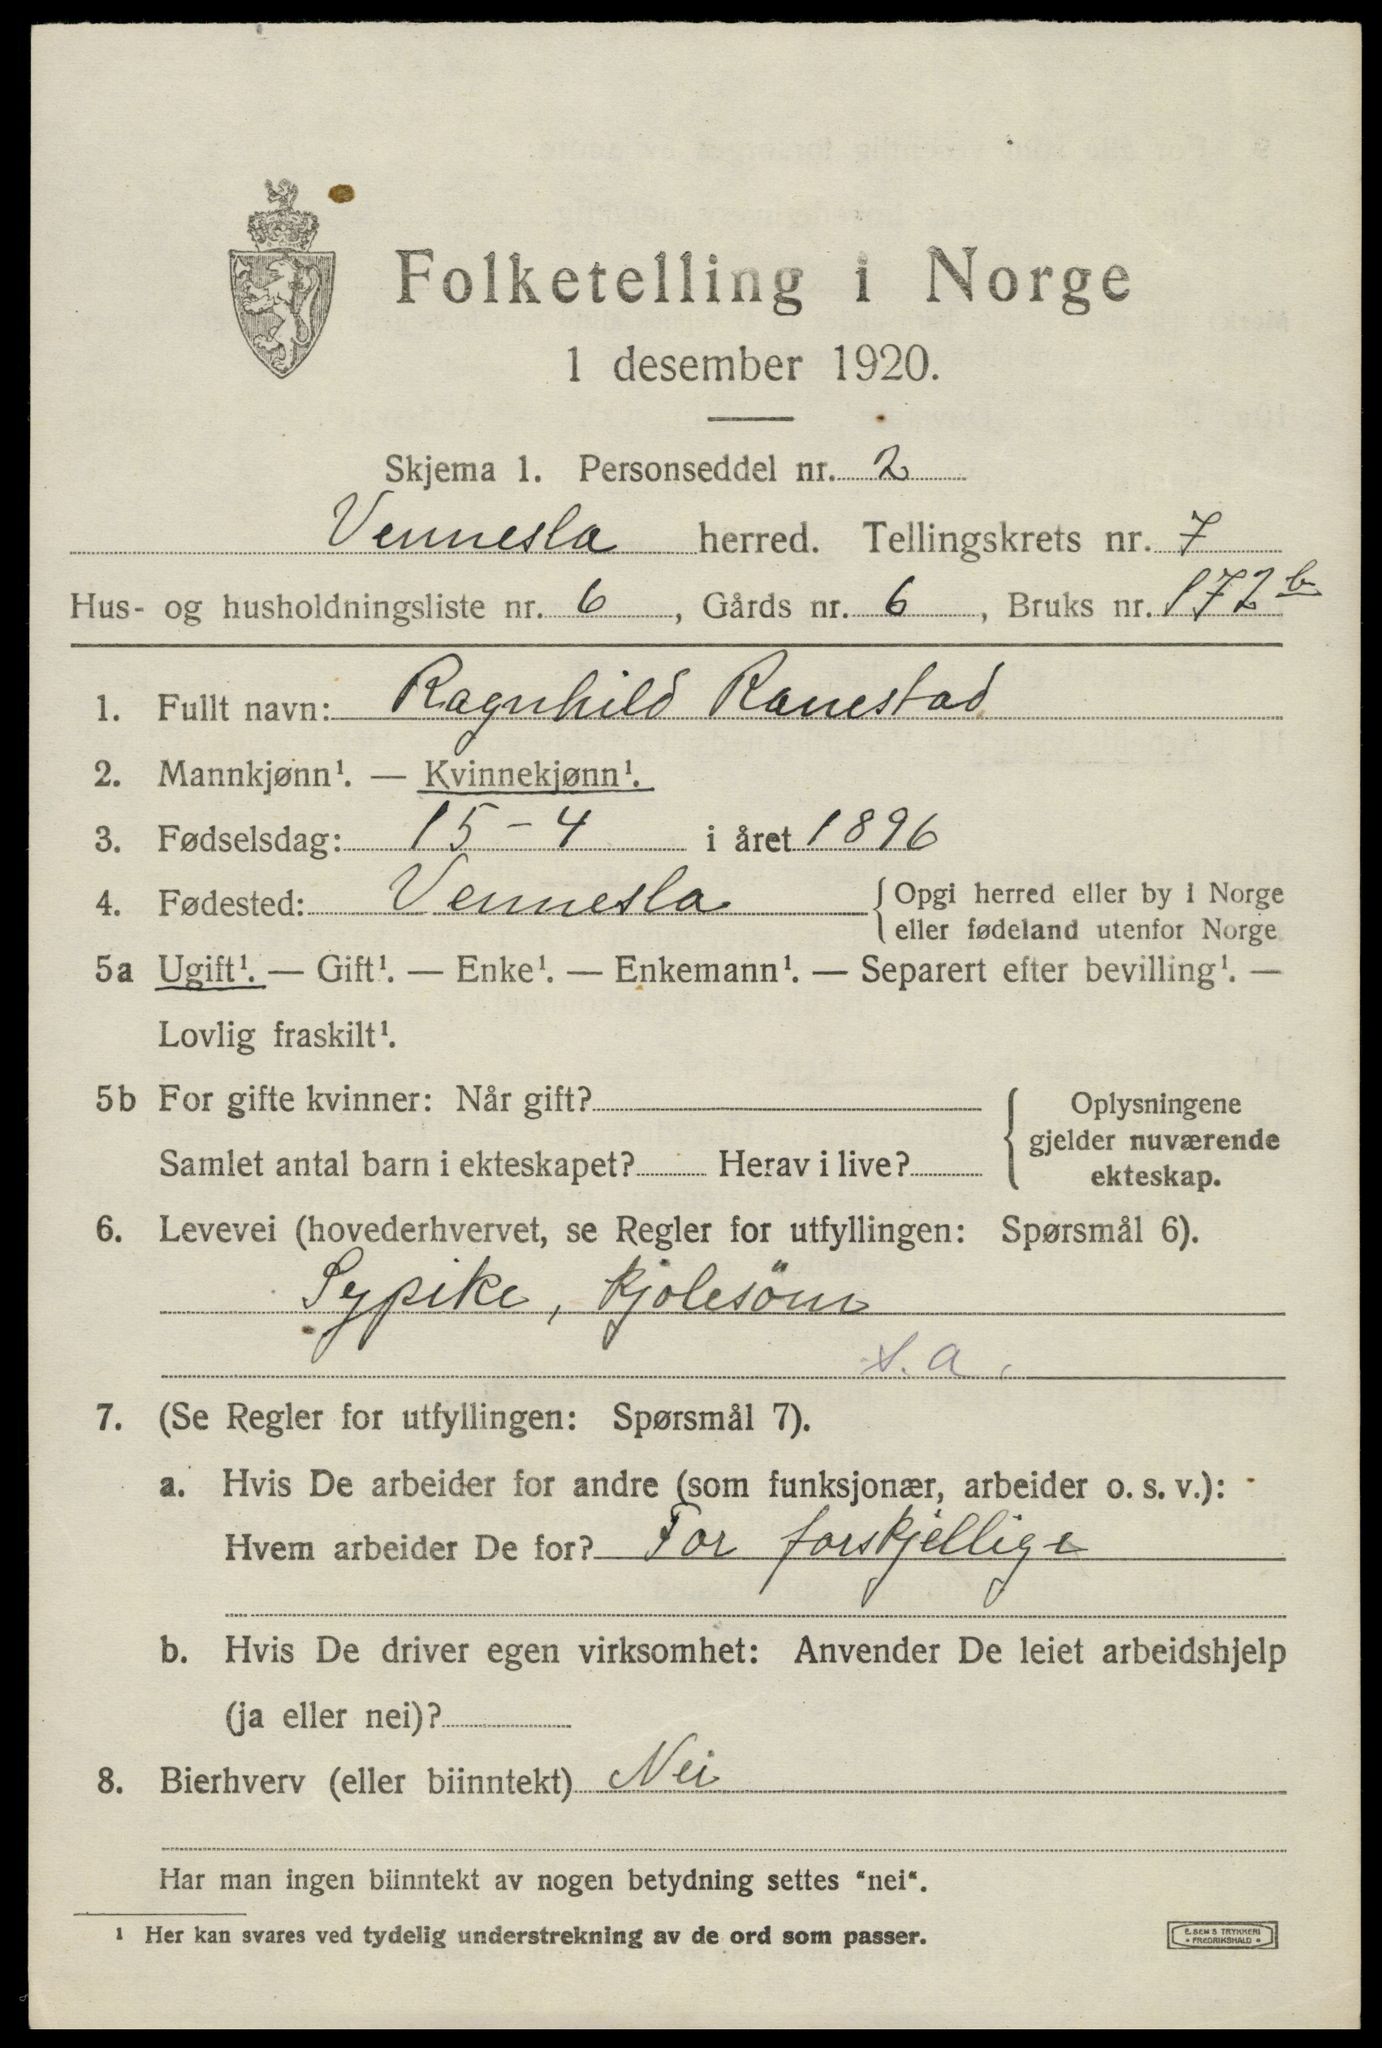 Folketelling i Norge
1 desember 1920.
Skjema 1. Personseddel nr. 2
Vennesla herred. Tellingskrets nr. 7
Hus- og husholdningsliste nr. 6, Gårds nr. 6, Bruks nr. 172 b
1. Fullt navn: Ragnhild Ranestad
2. Mannkjønn¹. — Kvinnekjønn¹.
3. Fødselsdag: 15-4 i året 1896
4. Fødested: Vennesla { Opgi herred eller by i Norge
eller fødeland utenfor Norge
5a Ugift¹. — Gift¹. — Enke¹. — Enkemann¹. — Separert efter bevilling¹. —
Lovlig fraskilt¹.
5b For gifte kvinner: Når gift? { Oplysningene
gjelder nuværende
Samlet antal barn i ekteskapet? Herav i live?
ekteskap.
6. Levevei (hovederhvervet, se Regler for utfyllingen: Spørsmål 6).
Sypike, kjolesöm
s. a.
7. (Se Regler for utfyllingen: Spørsmål 7).
a. Hvis De arbeider for andre (som funksjonær, arbeider o. s. v.):
Hvem arbeider De for? For forskjellige
b. Hvis De driver egen virksomhet: Anvender De leiet arbeidshjelp
(ja eller nei)?
8. Bierhverv (eller biinntekt) Nei
Har man ingen biinntekt av nogen betydning settes "nei".
¹ Her kan svares ved tydelig understrekning av de ord som passer.
E. SEM'S TRYKKERI
• FREDRIKSHALD •